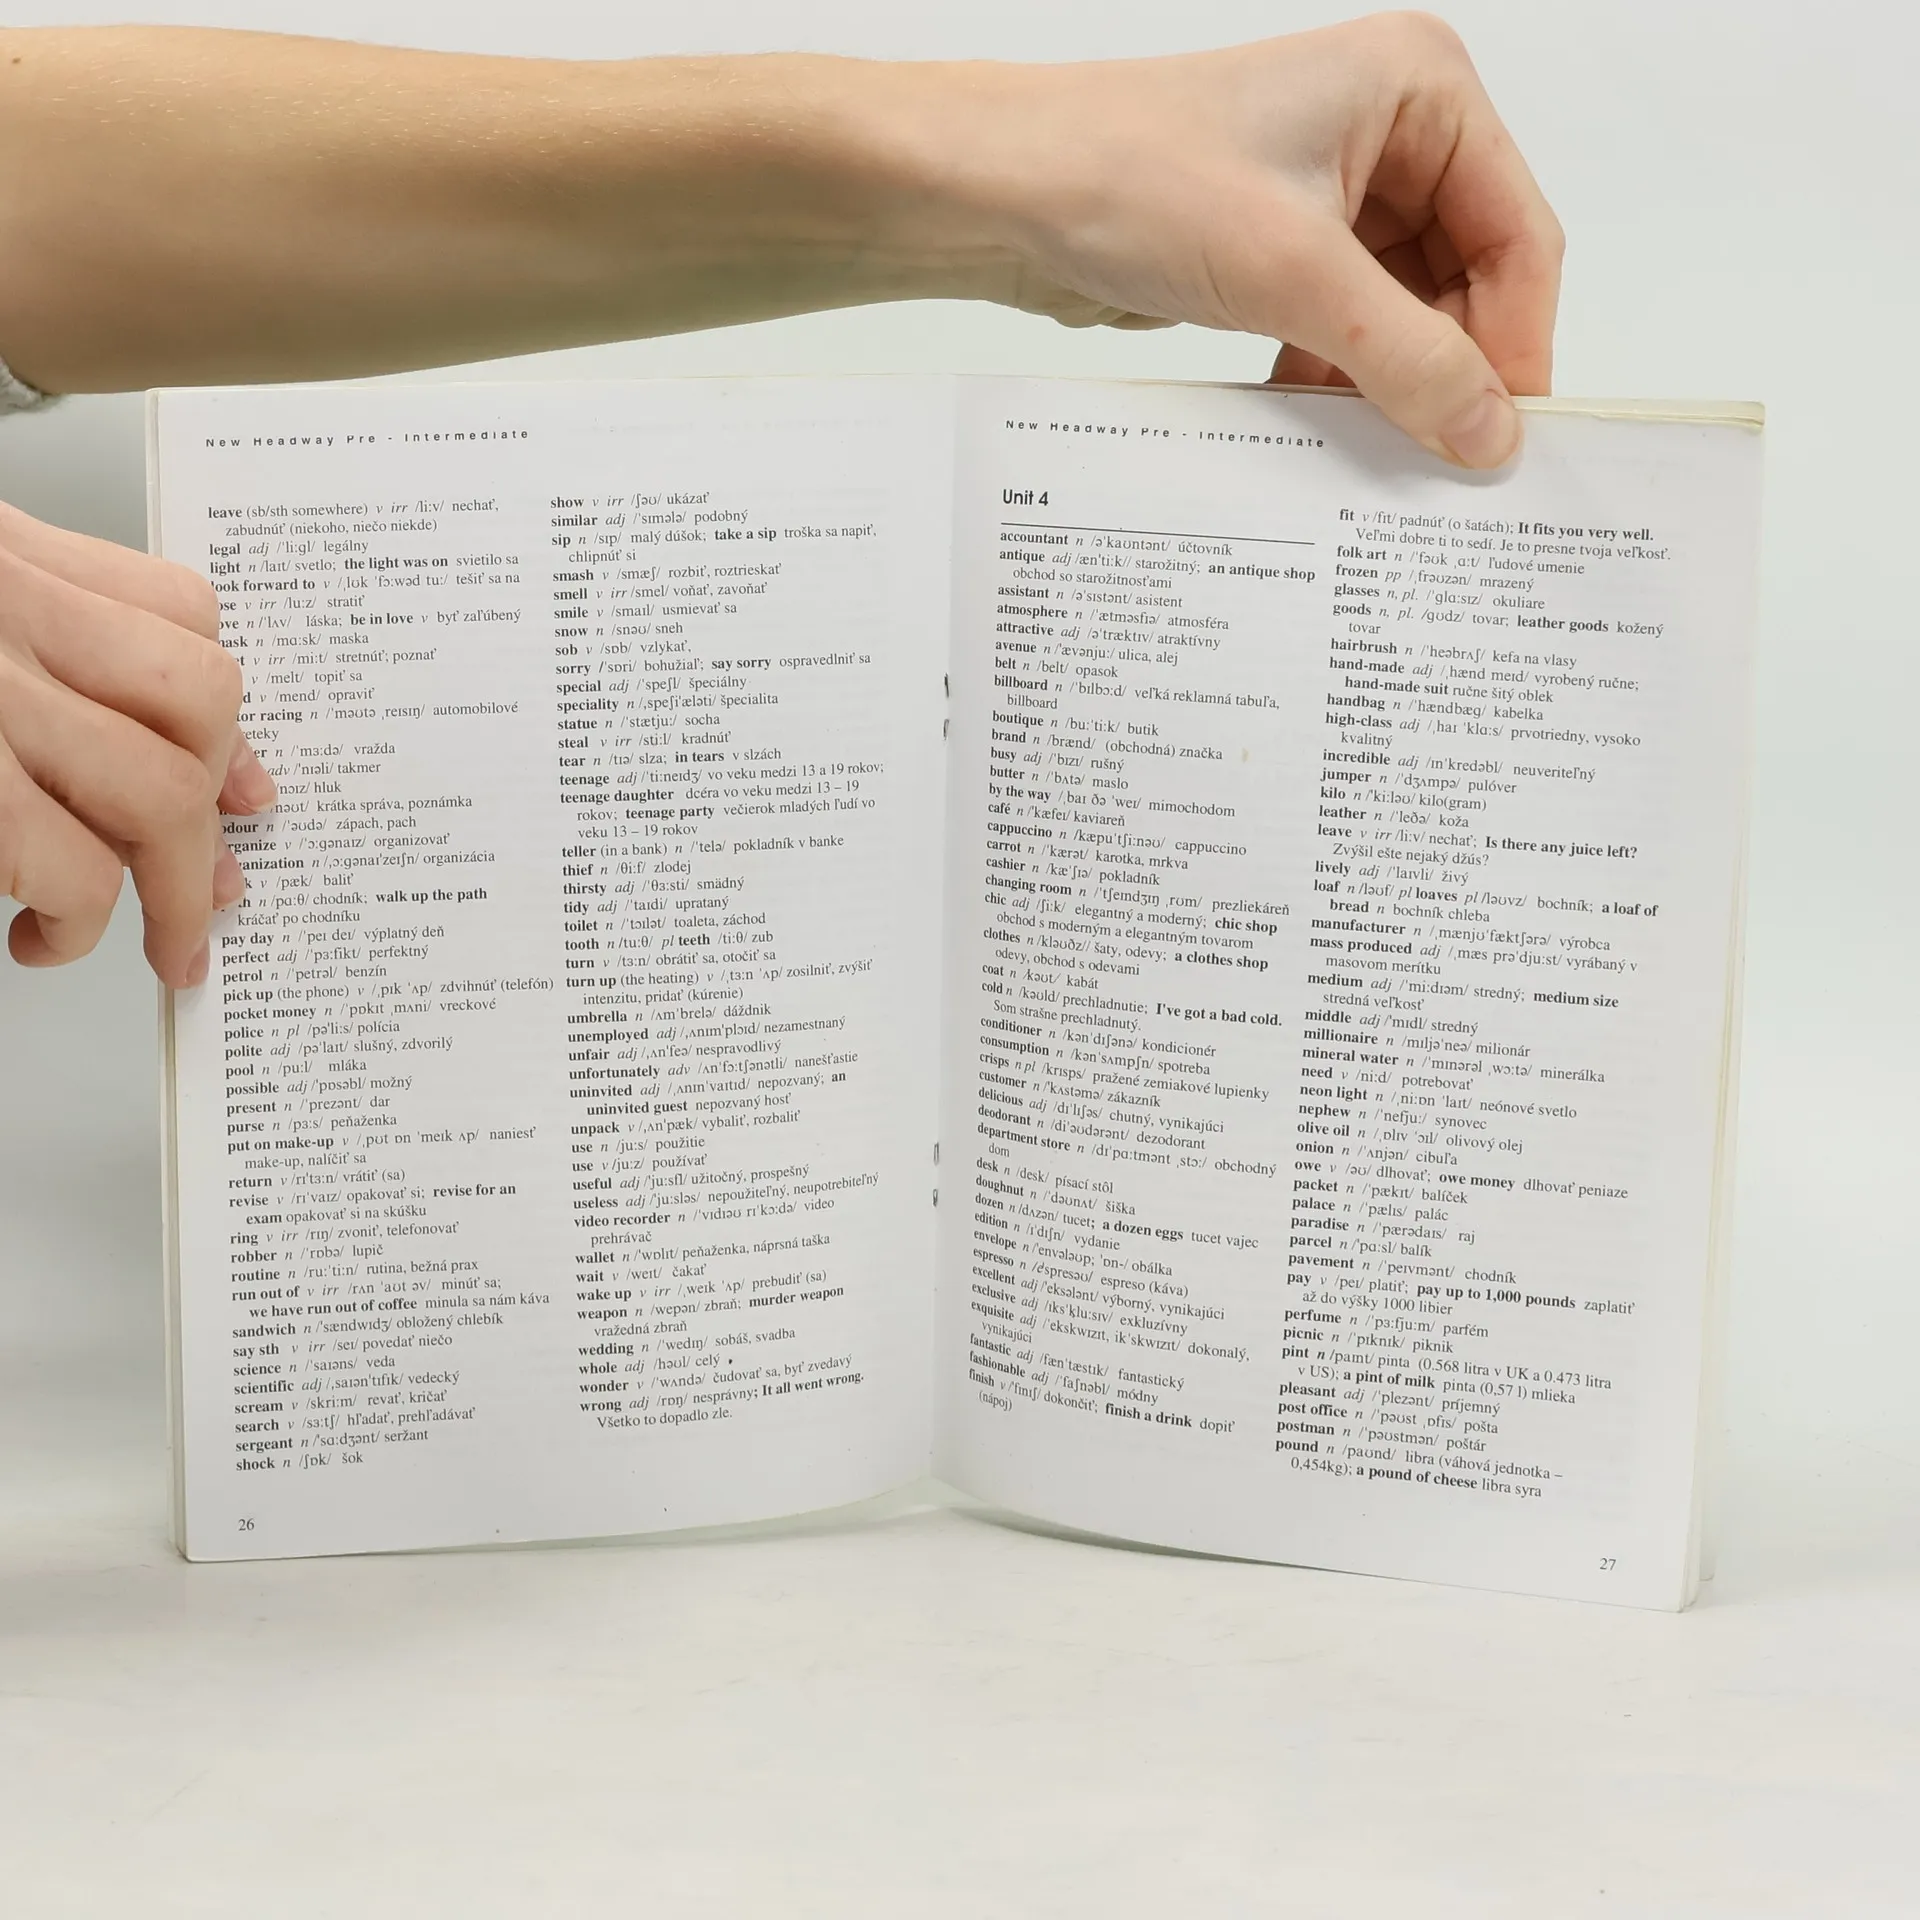 New Headway Pre - Intermediate
leave (sb/sth somewhere) v irr /li:v/ nechať,
zabudnúť (niekoho, niečo niekde)
legal adj /ˈli:gl/ legálny
light n /laɪt/ svetlo; the light was on svietilo sa
look forward to v /ˌlʊk ˈfɔ:wəd tu:/ tešiť sa na
ose v irr /lu:z/ stratiť
ove n /ˈlʌv/ láska; be in love v byť zaľúbený
mask n /mɑ:sk/ maska
t v irr /mi:t/ stretnúť; poznať
v /melt/ topiť sa
d v /mend/ opraviť
tor racing n /ˈməʊtə ˌreɪsɪŋ/ automobilové
reteky
er n /ˈmɜ:də/ vražda
adv /ˈnɪəli/ takmer
/nɔɪz/ hluk
/nəʊt/ krátka správa, poznámka
odour n /ˈəʊdə/ zápach, pach
rganize v /ˈɔ:gənaɪz/ organizovať
ganization n /ˌɔ:gənaɪˈzeɪʃn/ organizácia
k v /pæk/ baliť
th n /pɑ:θ/ chodník; walk up the path
kráčať po chodníku
pay day n /ˈpeɪ deɪ/ výplatný deň
perfect adj /ˈpɜ:fɪkt/ perfektný
petrol n /ˈpetrəl/ benzín
pick up (the phone) v /ˌpɪk ˈʌp/ zdvihnúť (telefón)
pocket money n /ˈpɒkɪt ˌmʌni/ vreckové
police n pl /pəˈli:s/ polícia
polite adj /pəˈlaɪt/ slušný, zdvorilý
pool n /pu:l/ mláka
possible adj /ˈpɒsəbl/ možný
present n /ˈprezənt/ dar
purse n /pɜ:s/ peňaženka
put on make-up v /ˌpʊt ɒn ˈmeɪk ʌp/ naniesť
make-up, nalíčiť sa
return v /rɪˈtɜ:n/ vrátiť (sa)
revise v /rɪˈvaɪz/ opakovať si; revise for an
exam opakovať si na skúšku
ring v irr /rɪŋ/ zvoniť, telefonovať
robber n /ˈrɒbə/ lupič
routine n /ru:ˈti:n/ rutina, bežná prax
run out of v irr /rʌn ˈaʊt əv/ minúť sa;
we have run out of coffee minula sa nám káva
sandwich n /ˈsændwɪdʒ/ obložený chlebík
say sth v irr /seɪ/ povedať niečo
science n /ˈsaɪəns/ veda
scientific adj /ˌsaɪənˈtɪfɪk/ vedecký
scream v /skri:m/ revať, kričať
search v /sɜ:tʃ/ hľadať, prehľadávať
sergeant n /ˈsɑ:dʒənt/ seržant
shock n /ʃɒk/ šok
show v irr /ʃəʊ/ ukázať
similar adj /ˈsɪmələ/ podobný
sip n /sɪp/ malý dúšok; take a sip troška sa napiť,
chlipnúť si
smash v /smæʃ/ rozbiť, roztrieskať
smell v irr /smel/ voňať, zavoňať
smile v /smaɪl/ usmievať sa
snow n /snəʊ/ sneh
sob v /sɒb/ vzlykať,
sorry /ˈsɒri/ bohužiaľ; say sorry ospravedlniť sa
special adj /ˈspeʃl/ špeciálny
speciality n /ˌspeʃiˈæləti/ špecialita
statue n /ˈstætju:/ socha
steal v irr /sti:l/ kradnúť
tear n /tɪə/ slza; in tears v slzách
teenage adj /ˈti:neɪdʒ/ vo veku medzi 13 a 19 rokov;
teenage daughter dcéra vo veku medzi 13 – 19
rokov; teenage party večierok mladých ľudí vo
veku 13 – 19 rokov
teller (in a bank) n /ˈtelə/ pokladník v banke
thief n /θi:f/ zlodej
thirsty adj /ˈθɜ:sti/ smädný
tidy adj /ˈtaɪdi/ uprataný
toilet n /ˈtɔɪlət/ toaleta, záchod
tooth n /tu:θ/ pl teeth /ti:θ/ zub
turn v /tɜ:n/ obrátiť sa, otočiť sa
turn up (the heating) v /ˌtɜ:n ˈʌp/ zosilniť, zvýšiť
intenzitu, pridať (kúrenie)
umbrella n /ʌmˈbrelə/ dáždnik
unemployed adj /ˌʌnɪmˈplɔɪd/ nezamestnaný
unfair adj /ˌʌnˈfeə/ nespravodlivý
unfortunately adv /ʌnˈfɔ:tʃənətli/ nanešťastie
uninvited adj /ˌʌnɪnˈvaɪtɪd/ nepozvaný; an
uninvited guest nepozvaný hosť
unpack v /ˌʌnˈpæk/ vybaliť, rozbaliť
use n /ju:s/ použitie
use v /ju:z/ používať
useful adj /ˈju:sfl/ užitočný, prospešný
useless adj /ˈju:sləs/ nepoužiteľný, neupotrebiteľný
video recorder n /ˈvɪdɪəʊ rɪˈkɔ:də/ video
prehrávač
wallet n /ˈwɒlɪt/ peňaženka, náprsná taška
wait v /weɪt/ čakať
wake up v irr /ˌweɪk ˈʌp/ prebudiť (sa)
weapon n /wepən/ zbraň; murder weapon
vražedná zbraň
wedding n /ˈwedɪŋ/ sobáš, svadba
whole adj /həʊl/ celý
wonder v /ˈwʌndə/ čudovať sa, byť zvedavý
wrong adj /rɒŋ/ nesprávny; It all went wrong.
Všetko to dopadlo zle.
26
New Headway Pre - Intermediate
Unit 4
accountant n /əˈkaʊntənt/ účtovník
antique adj /ænˈti:k// starožitný; an antique shop
obchod so starožitnosťami
assistant n /əˈsɪstənt/ asistent
atmosphere n /ˈætməsfɪə/ atmosféra
attractive adj /əˈtræktɪv/ atraktívny
avenue n /ˈævənju:/ ulica, alej
belt n /belt/ opasok
billboard n /ˈbɪlbɔ:d/ veľká reklamná tabuľa,
billboard
boutique n /bu:ˈti:k/ butik
brand n /brænd/ (obchodná) značka
busy adj /ˈbɪzɪ/ rušný
butter n /ˈbʌtə/ maslo
by the way /ˌbaɪ ðə ˈweɪ/ mimochodom
café n /ˈkæfeɪ/ kaviareň
cappuccino n /kæpuˈtʃi:nəʊ/ cappuccino
carrot n /ˈkærət/ karotka, mrkva
cashier n /kæˈʃɪə/ pokladník
changing room n /ˈtʃeɪndʒɪŋ ˌrʊm/ prezliekáreň
chic adj /ʃi:k/ elegantný a moderný; chic shop
obchod s moderným a elegantným tovarom
clothes n /kləʊðz// šaty, odevy; a clothes shop
odevy, obchod s odevami
coat n /kəʊt/ kabát
cold n /kəʊld/ prechladnutie; I've got a bad cold.
Som strašne prechladnutý.
conditioner n /kənˈdɪʃənə/ kondicionér
consumption n /kənˈsʌmpʃn/ spotreba
crisps n pl /krɪsps/ pražené zemiakové lupienky
customer n /ˈkʌstəmə/ zákazník
delicious adj /dɪˈlɪʃəs/ chutný, vynikajúci
deodorant n /diˈəʊdərənt/ dezodorant
department store n /dɪˈpɑ:tmənt ˌstɔ:/ obchodný
dom
desk n /desk/ písací stôl
doughnut n /ˈdəʊnʌt/ šiška
dozen n /dʌzən/ tucet; a dozen eggs tucet vajec
edition n /ɪˈdɪʃn/ vydanie
envelope n /ˈenvələʊp; ˈɒn-/ obálka
espresso n /eˈspresəʊ/ espreso (káva)
excellent adj /ˈeksələnt/ výborný, vynikajúci
exclusive adj /ɪksˈklu:sɪv/ exkluzívny
exquisite adj /ˈekskwɪzɪt, ikˈskwɪzɪt/ dokonalý,
vynikajúci
fantastic adj /fænˈtæstɪk/ fantastický
fashionable adj /ˈfaʃnəbl/ módny
finish v /ˈfɪnɪʃ/ dokončiť; finish a drink dopiť
(nápoj)
fit v /fɪt/ padnúť (o šatách); It fits you very well.
Veľmi dobre ti to sedí. Je to presne tvoja veľkosť.
folk art n /ˈfəʊk ˌɑ:t/ ľudové umenie
frozen pp /ˌfrəʊzən/ mrazený
glasses n, pl. /ˈglɑ:sɪz/ okuliare
goods n, pl. /gʊdz/ tovar; leather goods kožený
tovar
hairbrush n /ˈheəbrʌʃ/ kefa na vlasy
hand-made adj /ˌhænd meɪd/ vyrobený ručne;
hand-made suit ručne šitý oblek
handbag n /ˈhændbæg/ kabelka
high-class adj /ˌhaɪ ˈklɑ:s/ prvotriedny, vysoko
kvalitný
incredible adj /ɪnˈkredəbl/ neuveriteľný
jumper n /ˈdʒʌmpə/ pulóver
kilo n /ˈki:ləʊ/ kilo(gram)
leather n /ˈleðə/ koža
leave v irr /li:v/ nechať; Is there any juice left?
Zvýšil ešte nejaký džús?
lively adj /ˈlaɪvli/ živý
loaf n /ləʊf/ pl loaves pl /ləʊvz/ bochník; a loaf of
bread n bochník chleba
manufacturer n /ˌmænjʊˈfæktʃərə/ výrobca
mass produced adj /ˌmæs prəˈdju:st/ vyrábaný v
masovom merítku
medium adj /ˈmi:dɪəm/ stredný; medium size
stredná veľkosť
middle adj /ˈmɪdl/ stredný
millionaire n /mɪljəˈneə/ milionár
mineral water n /ˈmɪnərəl ˌwɔ:tə/ minerálka
need v /ni:d/ potrebovať
neon light n /ˌni:ɒn ˈlaɪt/ neónové svetlo
nephew n /ˈnefju:/ synovec
olive oil n /ˌɒlɪv ˈɔɪl/ olivový olej
onion n /ˈʌnjən/ cibuľa
owe v /əʊ/ dlhovať; owe money dlhovať peniaze
packet n /ˈpækɪt/ balíček
palace n /ˈpælɪs/ palác
paradise n /ˈpærədaɪs/ raj
parcel n /ˈpɑ:sl/ balík
pavement n /ˈpeɪvmənt/ chodník
pay v /peɪ/ platiť; pay up to 1,000 pounds zaplatiť
až do výšky 1000 libier
perfume n /ˈpɜ:fju:m/ parfém
picnic n /ˈpɪknɪk/ piknik
pint n /paɪnt/ pinta (0.568 litra v UK a 0.473 litra
v US); a pint of milk pinta (0,57 l) mlieka
pleasant adj /ˈplezənt/ príjemný
post office n /ˈpəʊst ˌɒfɪs/ pošta
postman n /ˈpəʊstmən/ poštár
pound n /paʊnd/ libra (váhová jednotka –
0,454kg); a pound of cheese libra syra
27